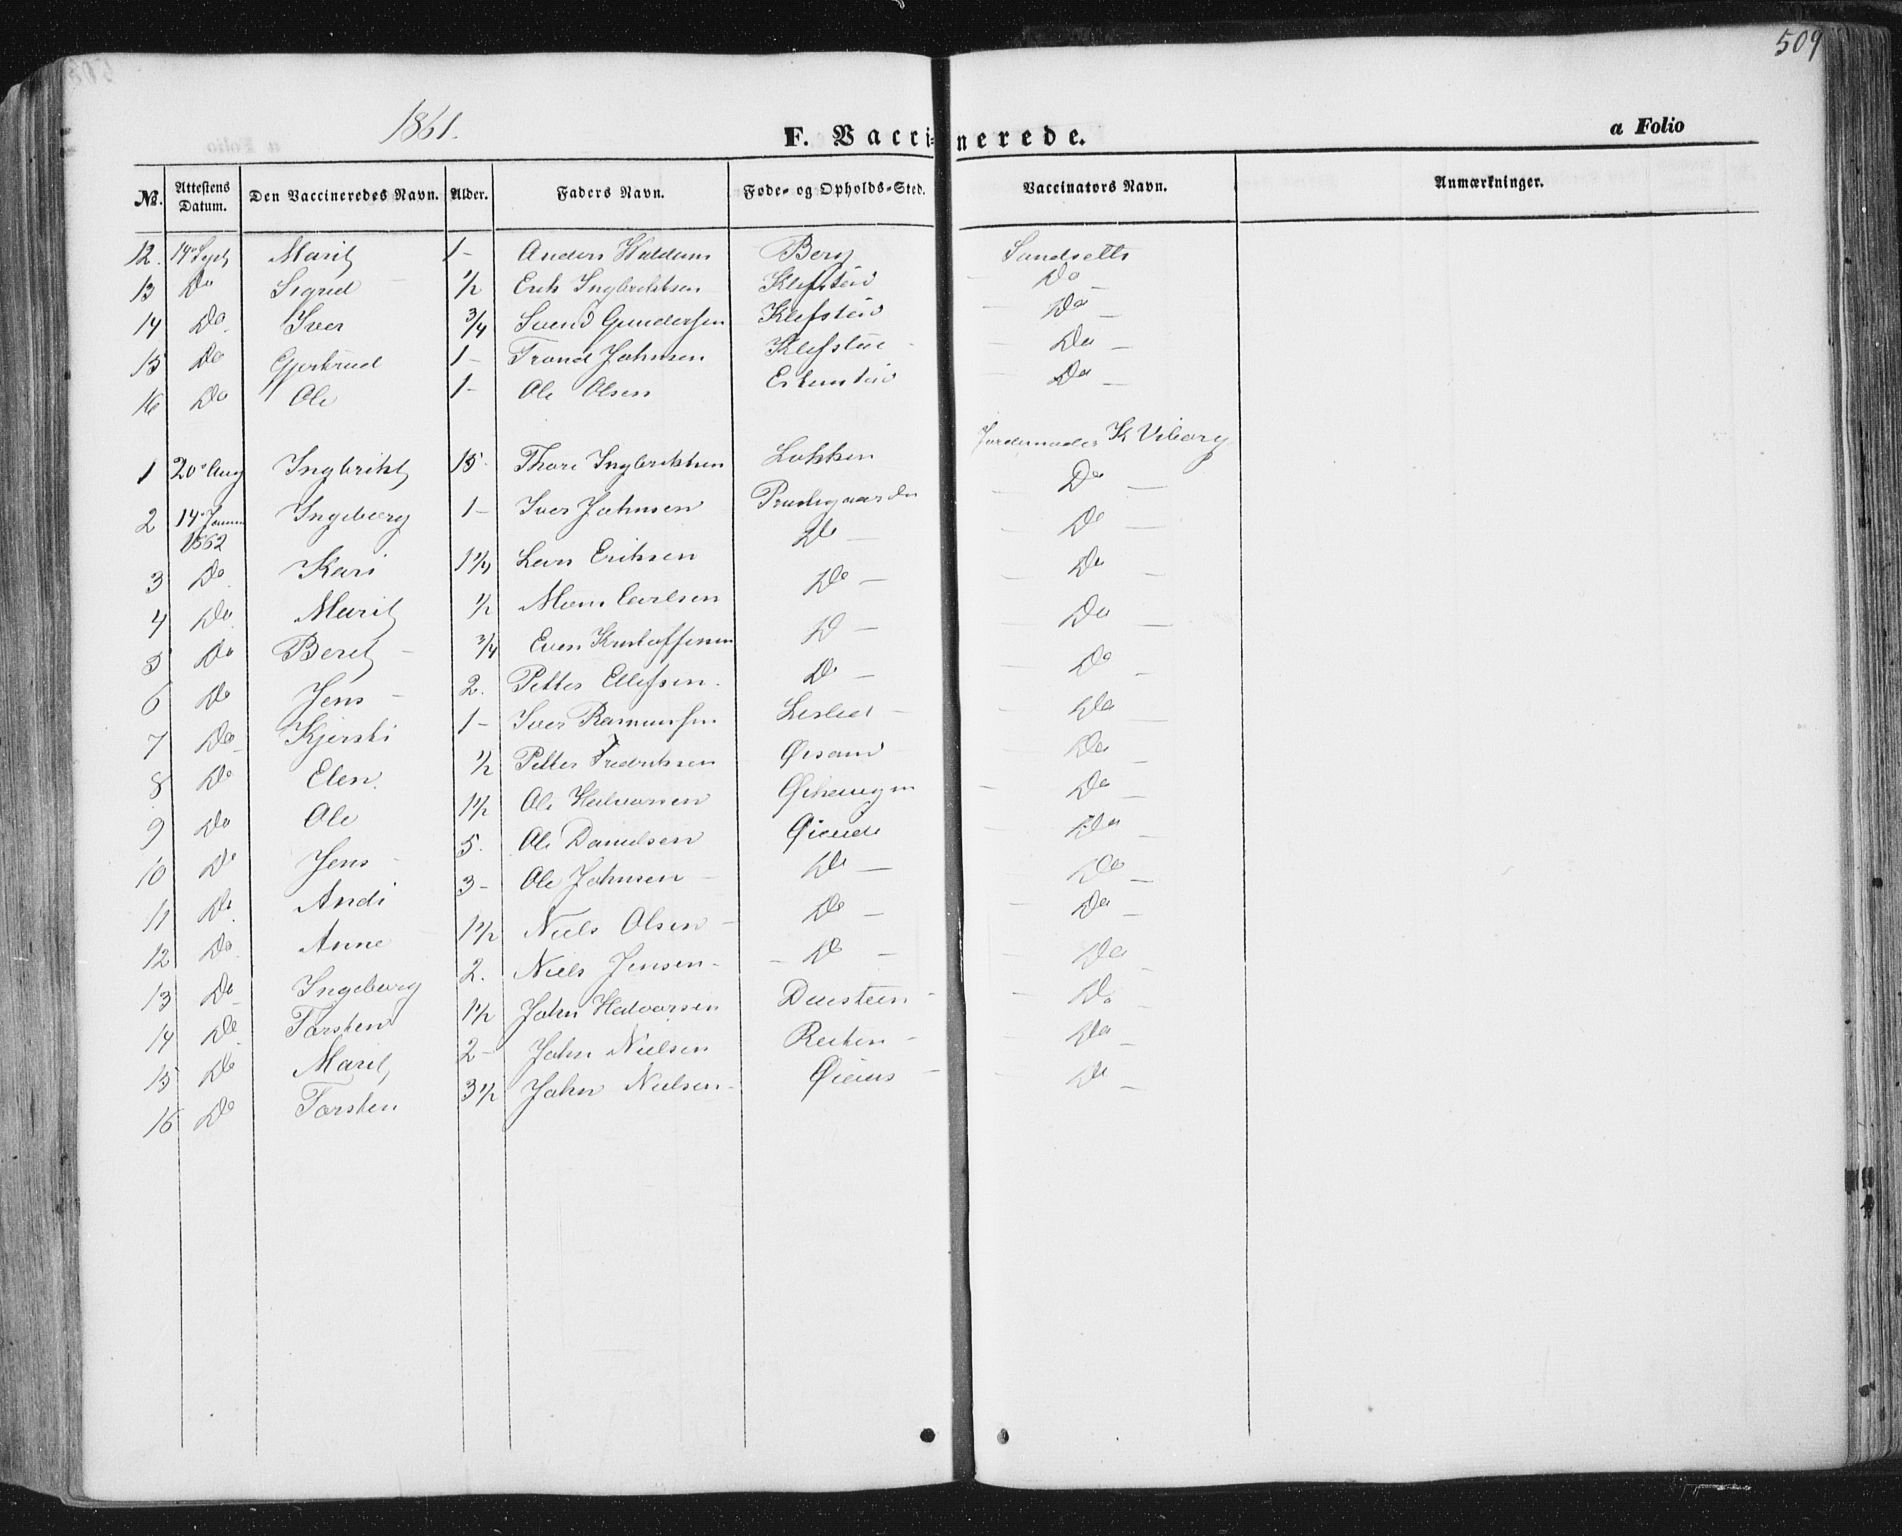 509
1861.
F. Vaccinerede.
a Folio
№. Attestens Datum. Den Vaccineredes Navn. Alder. Faders Navn. Føde- og Opholds-Sted. Vaccinators Navn. Anmærkninger.
12. 14de Sept Marit 1 - Anders Haldum Berg Sandsette
13 Do Sigrid - 1/2 Erik Ingbriktsen Klefstui - Do -
14 Do. Iver 3/4 Svend Gundersen Klefstui - Do -
15 Do Gjertrud 1 - Trond Johnsen Klefstui - Do -
16 Do Ole 1 - Ole Olsen - Do -
1 20de Aug Ingbrikt 15. Thore Ingbriktsen Løkken Jordemoder K Viborg
2 14de Januar 1862 Ingeborg 1 - Iver Johnsen Prestegaarden - Do -
3 Do Kari 1 1/4 Lars Eriksen Do - - Do -
4 Do Marit 1/2 Mons Carlsen Do - - Do -
5 Do Beret - 3/4 Even Kristoffersen D - - Do -
6 Do Jens - 2. Petter Ellefsen. Do - - Do -
7 Do Kjersti 1 - Iver Rasmussen - Do -
8 Do Elen. 1/2 Petter Fredriksen Øisand - Do -
9 Do Ole 1 1/2 Ole Halvorsen - Do -
10 Do Jens - 5. Ole Danielsen - Do -
11 Do Andi 3 - Ole Johnsen - Do - Do -
12 Do Anne - 1 1/2 Niels Olsen - Do - - Do -
13 Do Ingeborg 2. Niels Jensen - - D - - Do
14 Do Torsten 1 1/2 John Halvorsen - - Do
15 Do Marit 2 - John Nielsen - - Do -
16 Do Torsten 3 1/2 John Nielsen - - - Do -